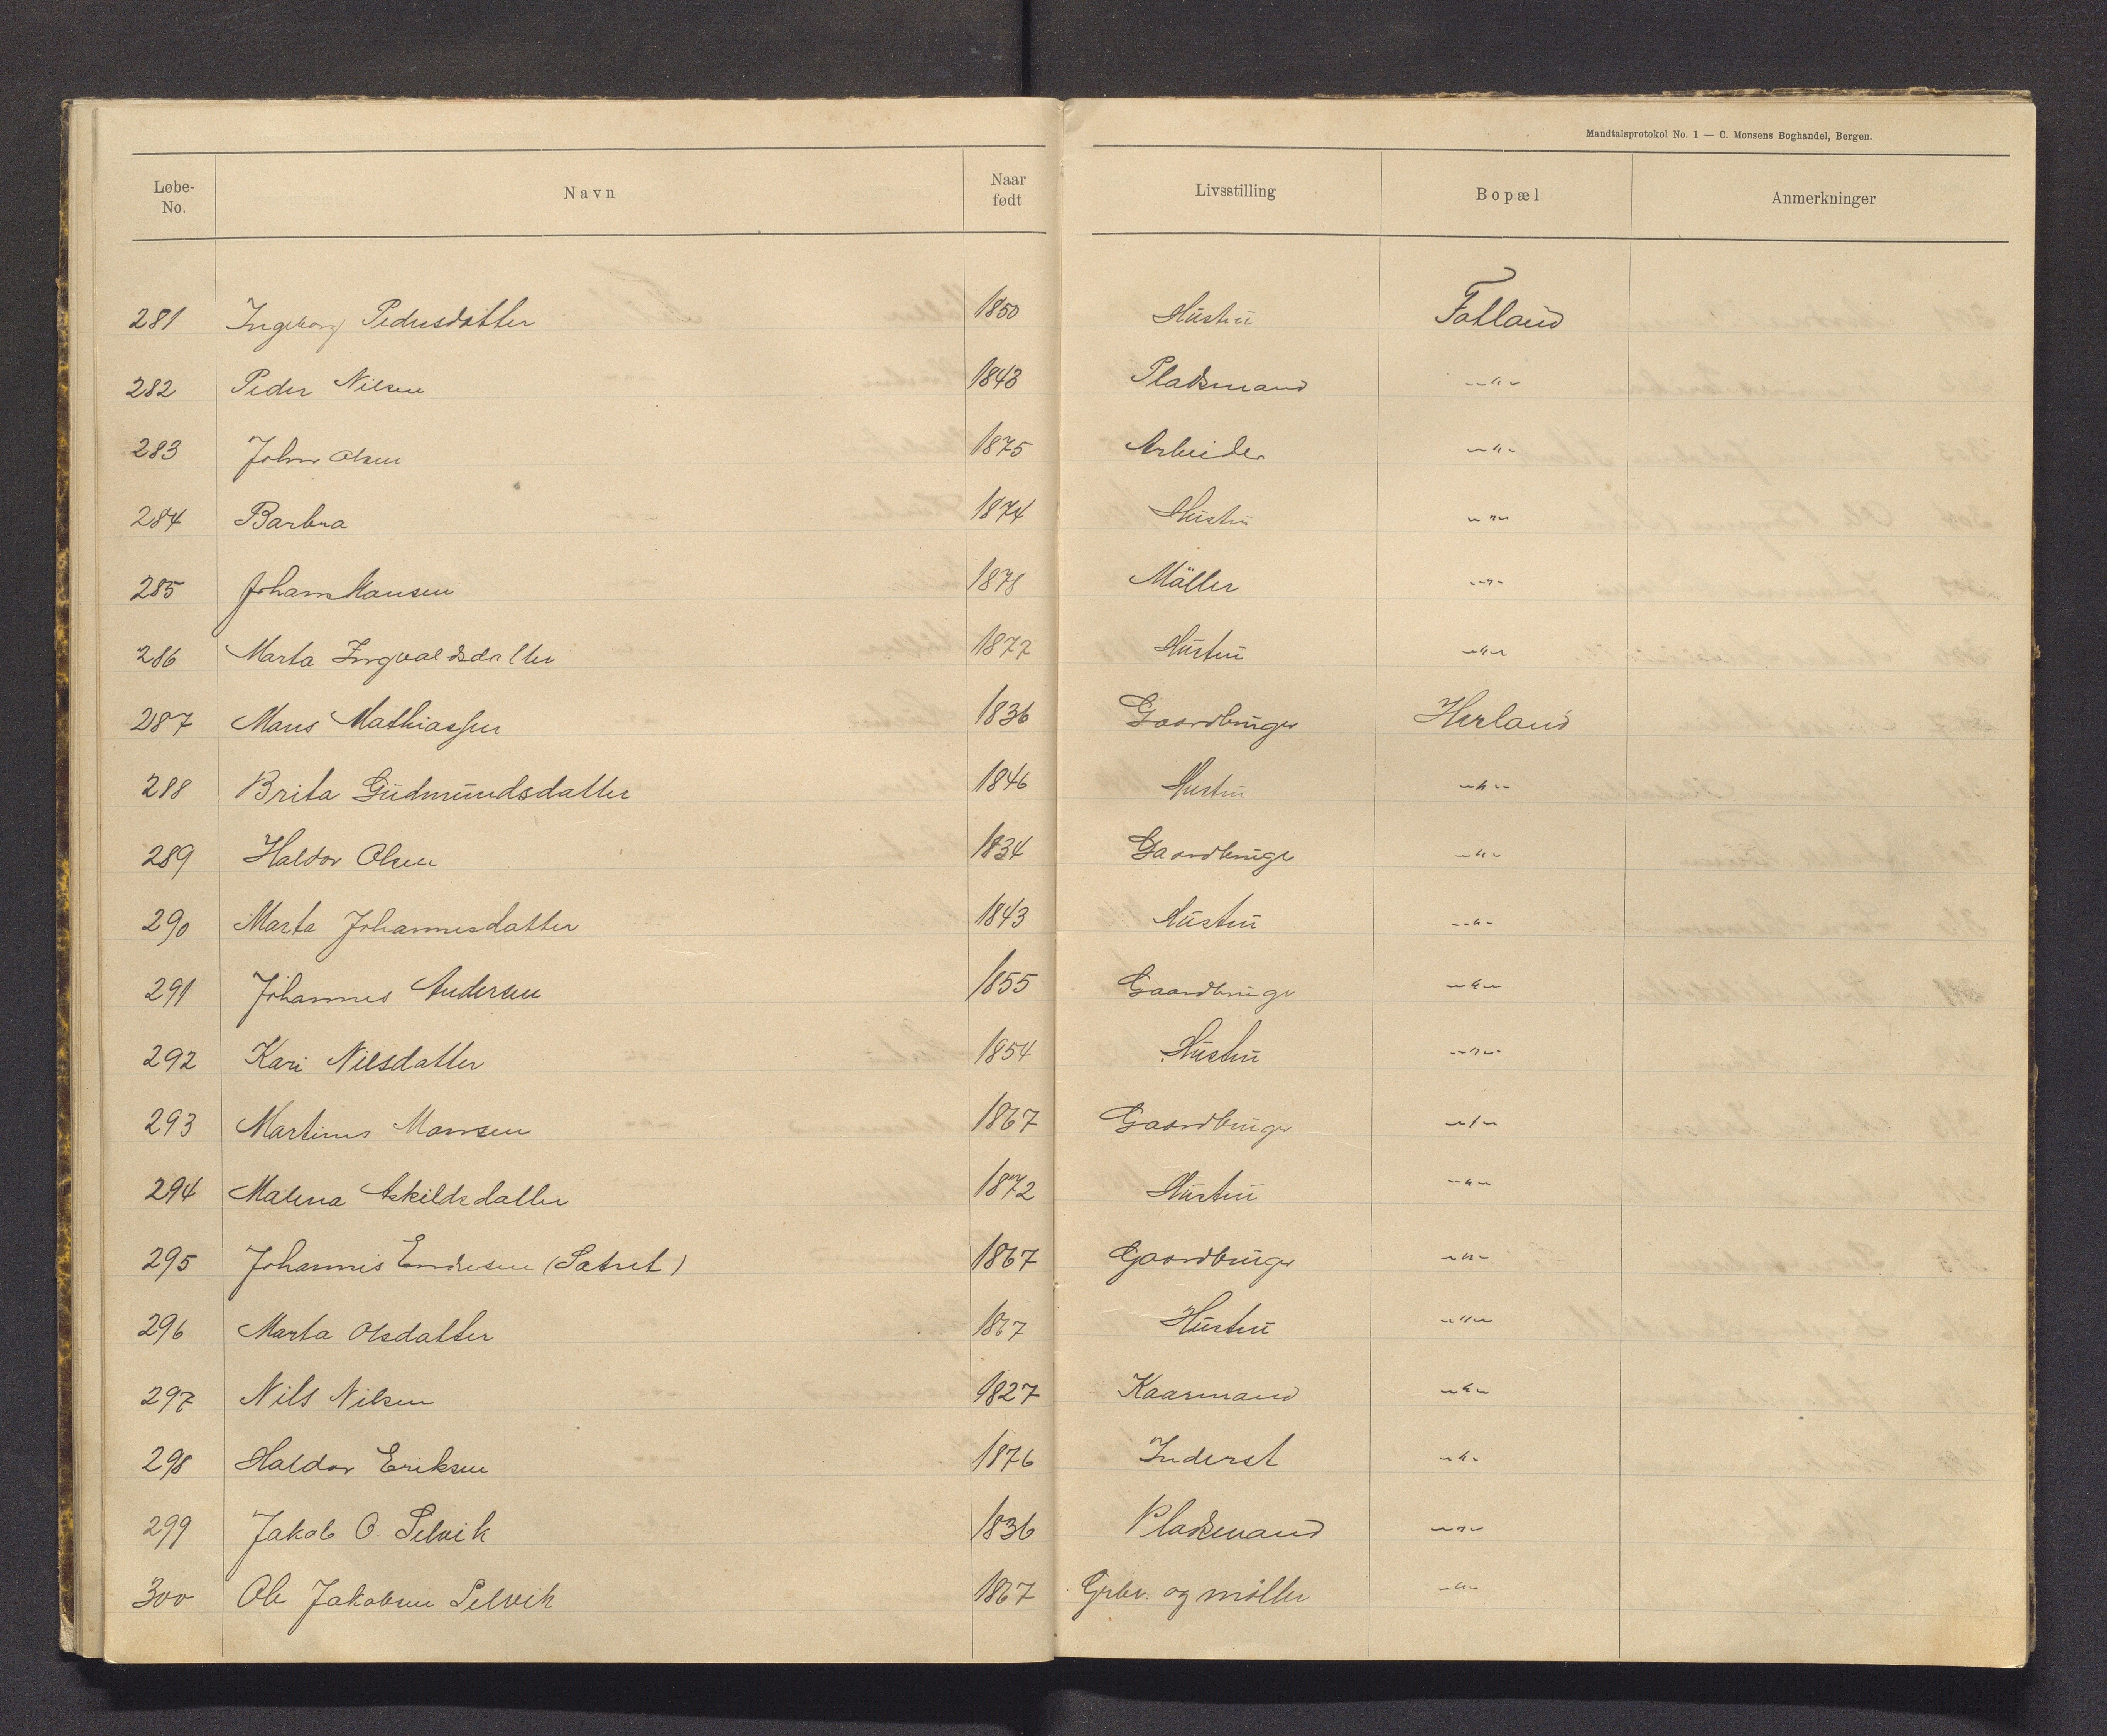 Mandtalsprotokol No. 1 — C. Monsens Boghandel, Bergen.
Løbe-No. Navn Naar født Livsstilling Bopæl Anmerkninger
281 Ingeborg Pedersdatter 1850 Hustru Fatland
282 Peder Nilsen 1843 Pladsmand -"-
283 Johan Olsen 1875 Arbeider -"-
284 Barbra 1874 Hustru -"-
285 Johan Hansen 1878 Möller -"-
286 Marta Ingvaldsdatter 1877 Hustru -"-
287 Mons Mathiassen 1836 Gaardbruger Herland
288 Brita Gudmundsdatter 1846 Hustru -"-
289 Haldor Olsen 1834 Gaardbruger -"-
290 Marta Johannesdatter 1843 Hustru -"-
291 Johannes Andersen 1855 Gaardbruger -"-
292 Kari Nilsdatter 1854 Hustru -"-
293 Martinus Monsen 1867 Gaardbruger -"-
294 Malena Askildsdatter 1872 Hustru -"-
295 Johannes Endresen (Sætret) 1867 Gaardbruger -"-
296 Marta Olsdatter 1867 Hustru -"-
297 Nils Nilsen 1827 Kaarmand -"-
298 Haldor Eriksen 1876 Inderst -"-
299 Jakob O. Selvik 1836 Pladsmand -"-
300 Ole Jakobsen Selvik 1867 Grbr. og møller -"-